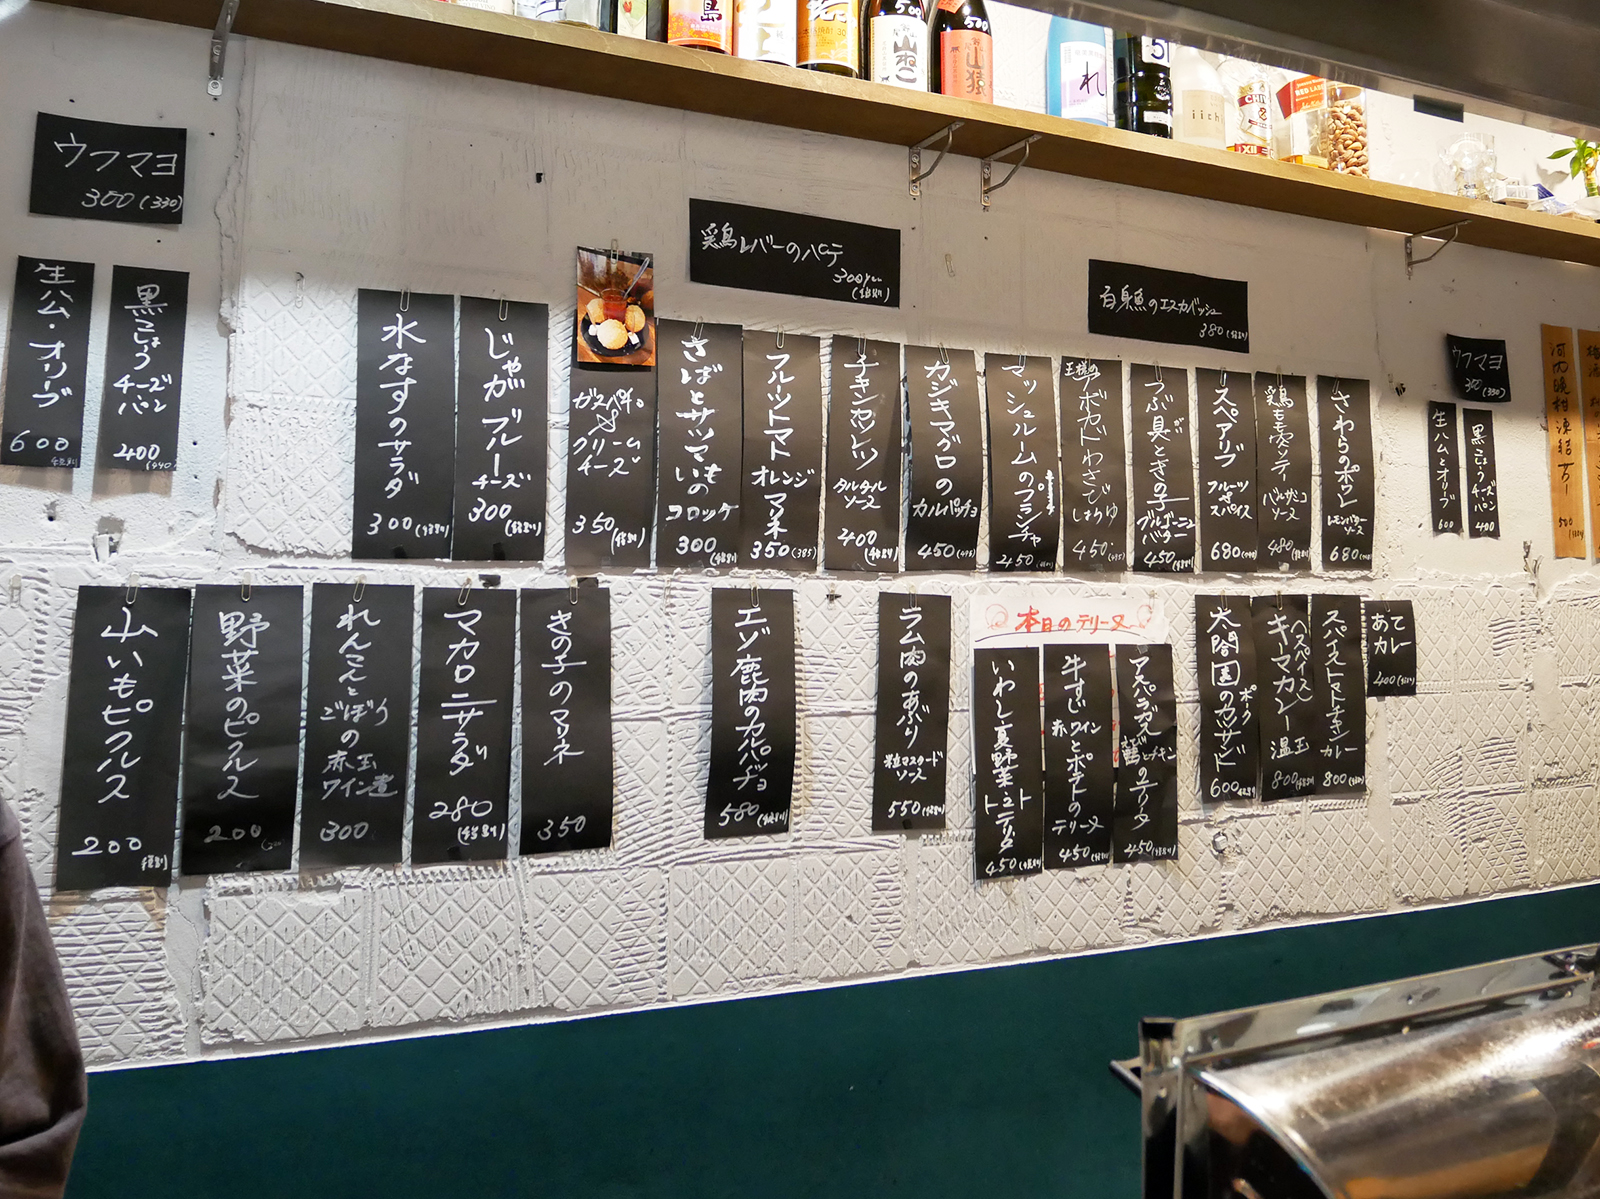 500
山ねこ
500
山猿
れ
RED LABEL
ウフマヨ
300(330)
生ハム・オリーブ
600
黒こしょう
チーズ
パン
400
(440)
水なすのサラダ
300(税別)
じゃがブルーチーズ
300
(税別)
ガスパチョ
クリーム
チーズ
350(税別)
鶏レバーのパテ
300yen
(税別)
さばとサツマいもの
コロッケ
300(税別)
フルーツトマト
オレンジ
マリネ
350(385)
チキンカツレツ
タルタル
ソース
400(税別)
カジキマグロの
カルパッチョ
450(495)
マッシュルームのプランチャ
450
王様の
アボカドわさび
しょうゆ
450(495)
白身魚のエスカベッシュ
380(税別)
つぶ貝ときの子
ブルゴーニュ
バター
450(税別)
スペアリブ
フルーツ
スパイス
680
鶏もも
バルサミコ
ソース
480(税別)
さわらのポワレ
レモンバター
ソース
680
ウフマヨ
300(330)
生ハムとオリーブ
600
黒こしょう
チーズ
パン
400
河内晩柑凍結サワー
500
山いもピクルス
200
税別
野菜のピクルス
200
れんこんと
ごぼうの
赤玉
ワイン煮
300
マカロニサラダ
280
(税別)
きの子のマリネ
350
エゾ鹿肉のカルパッチョ
580(税別)
ラム肉のあぶり
粒マスタード
ソース
550(税別)
本日のテリーヌ
いわし夏野菜トマトテリーヌ
450(税別)
牛すじ
赤ワイン
とポテトの
テリーヌ
450(税別)
アスパラガス
とチキン
のテリーヌ
450(税別)
太閤園の
ポーク
カツサンド
600
スパイス
キーマカレー
温玉
800(税別)
スパイストマトチキン
カレー
800
あて
カレー
400